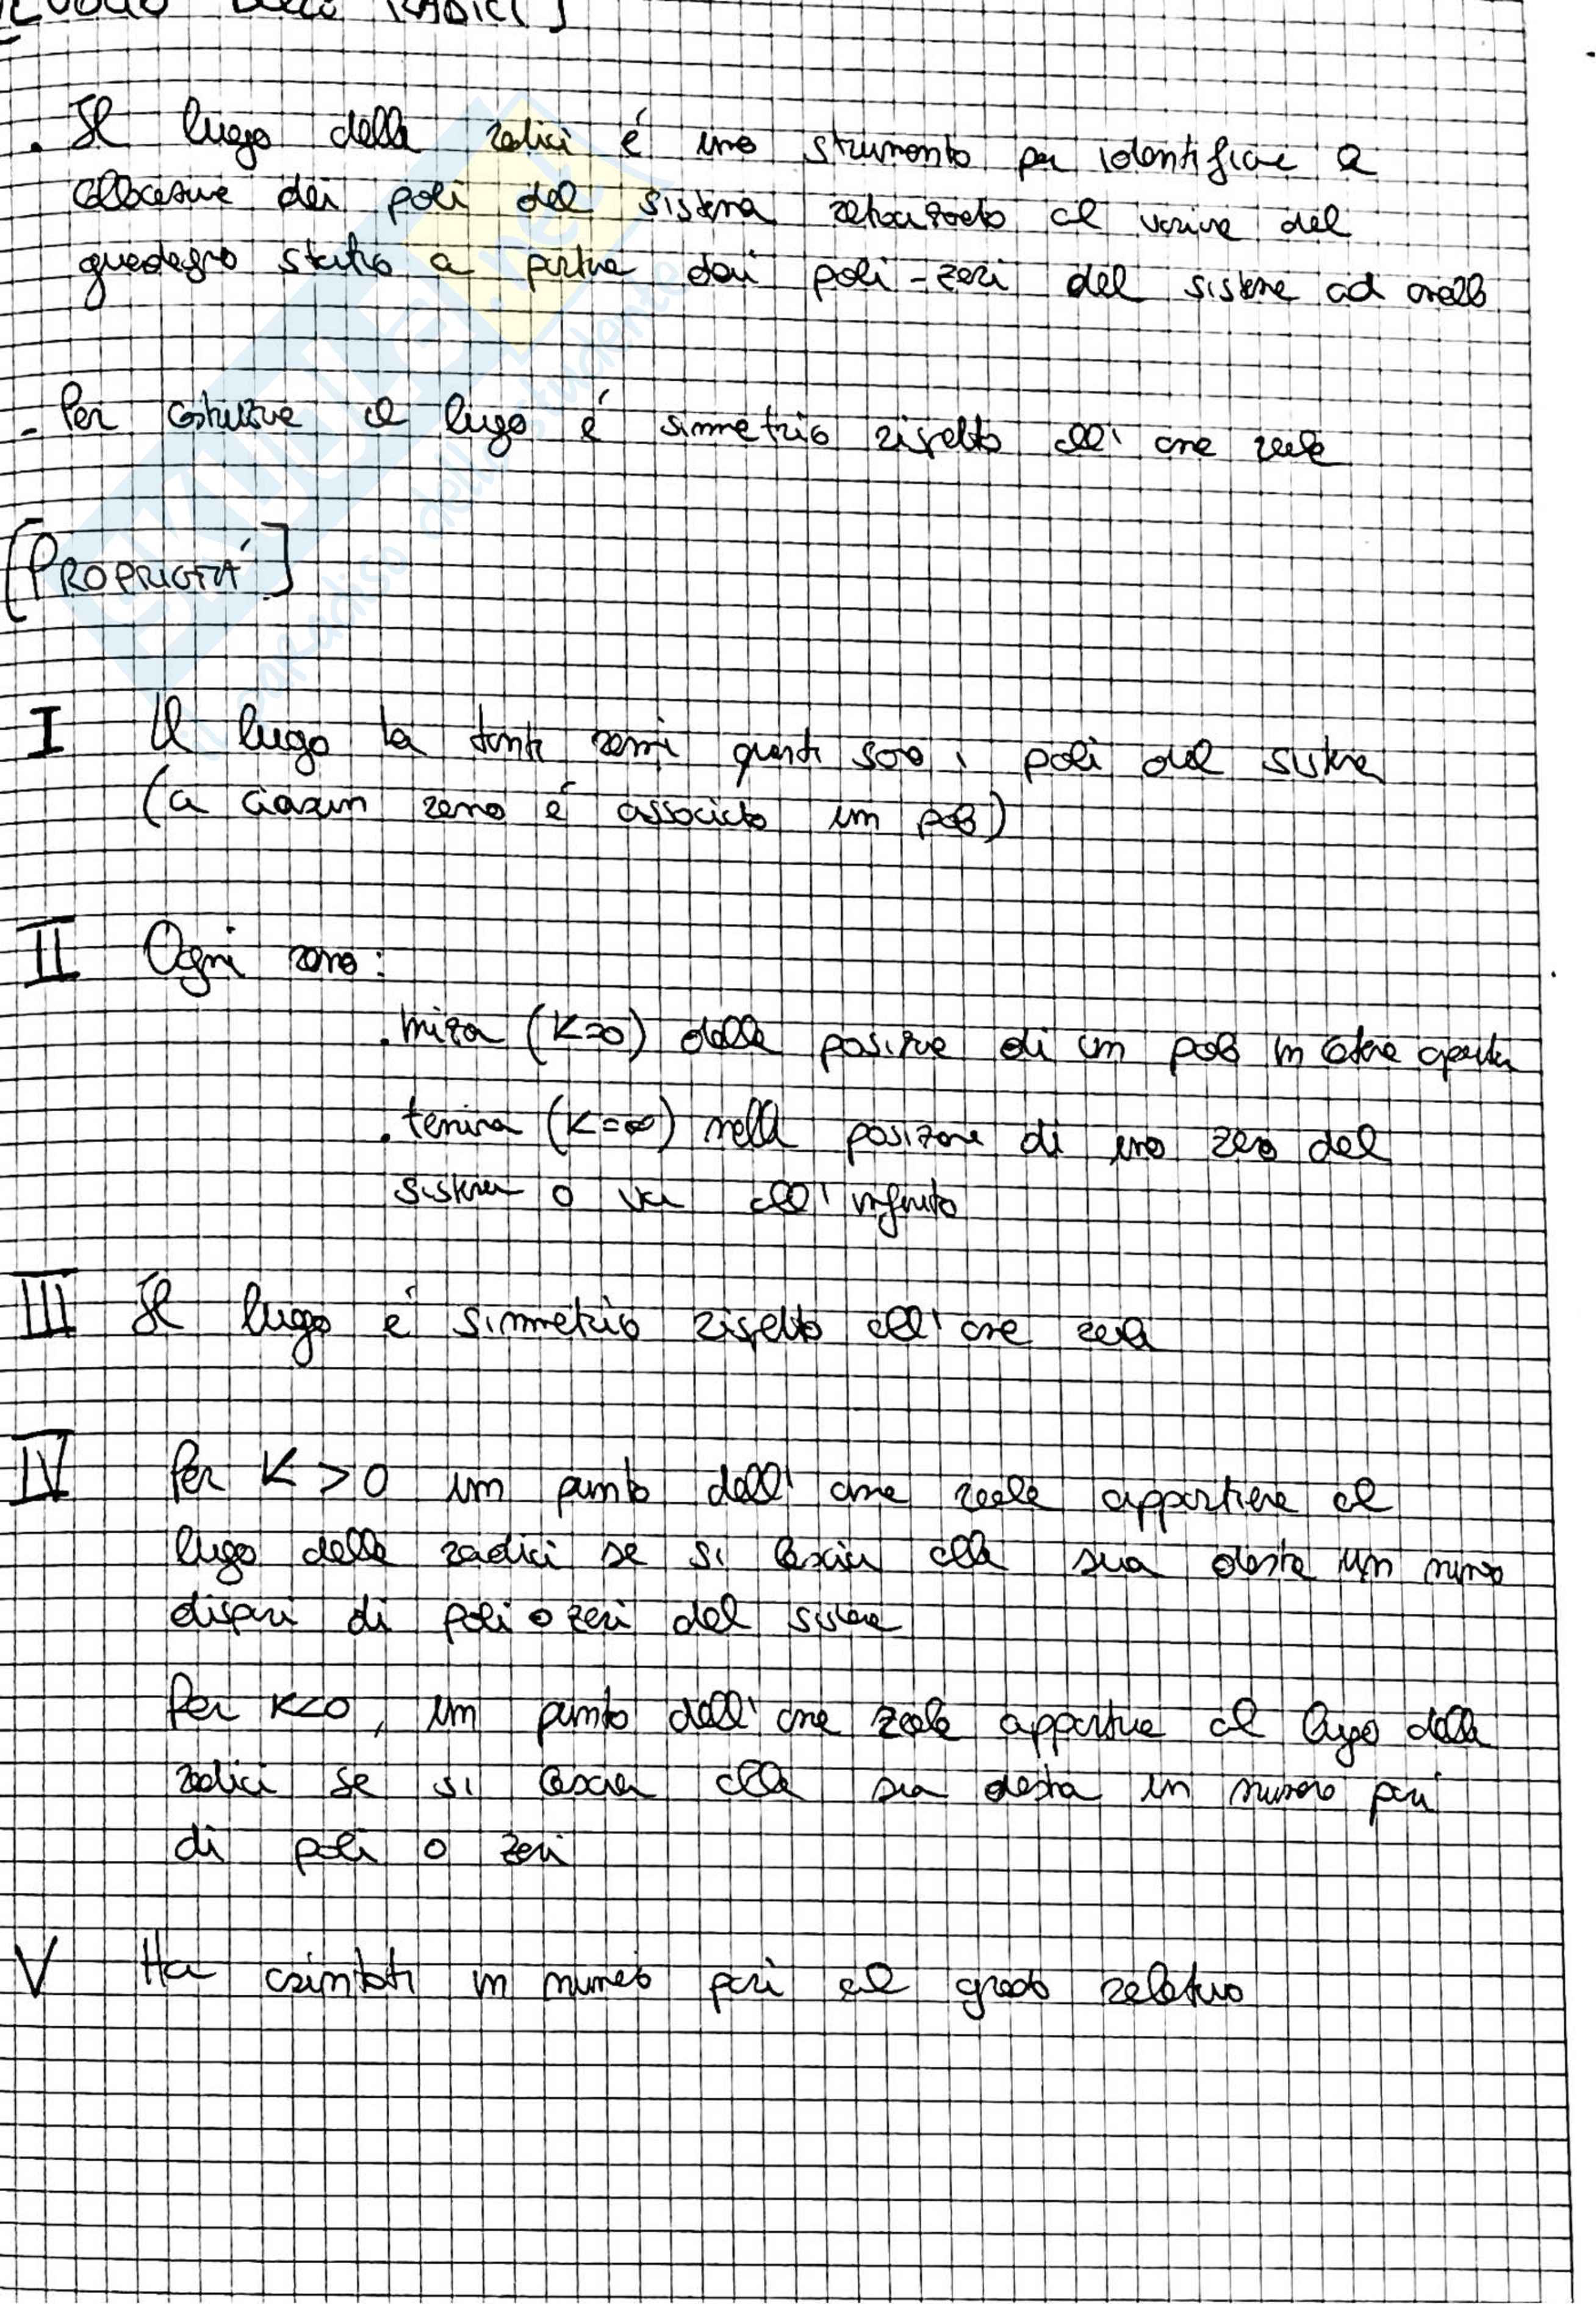 RADICI]
. Il luogo delle radici é uno strumento per identificare la
collocazione dei poli del sistema retroazionato al variare del
guadagno statico a partire dai poli-zeri del sistema ad anello
- Per costruire il luogo é simmetrico rispetto all' asse reale
[PROPRIETÁ]
I Il luogo ha tanti rami quanti sono i poli del sistema
(a ciascun ramo é associato un polo)
II Ogni ramo:
. inizia (K=0) dalla posizione di un polo in catena aperta
. termina (K=∞) nella posizione di uno zero del
sistema o va all' infinito
III Il luogo é simmetrico rispetto all' asse reale
IV Per K > 0 un punto dell' asse reale appartiene al
luogo delle radici se si lascia alla sua destra un numero
dispari di poli o zeri del sistema
Per K<0, un punto dell' asse reale appartiene al luogo delle
radici se si lascia alla sua destra un numero pari
di poli o zeri
V Ha asintoti in numero pari al grado relativo
SKUOLA.net
il paradiso dello studente